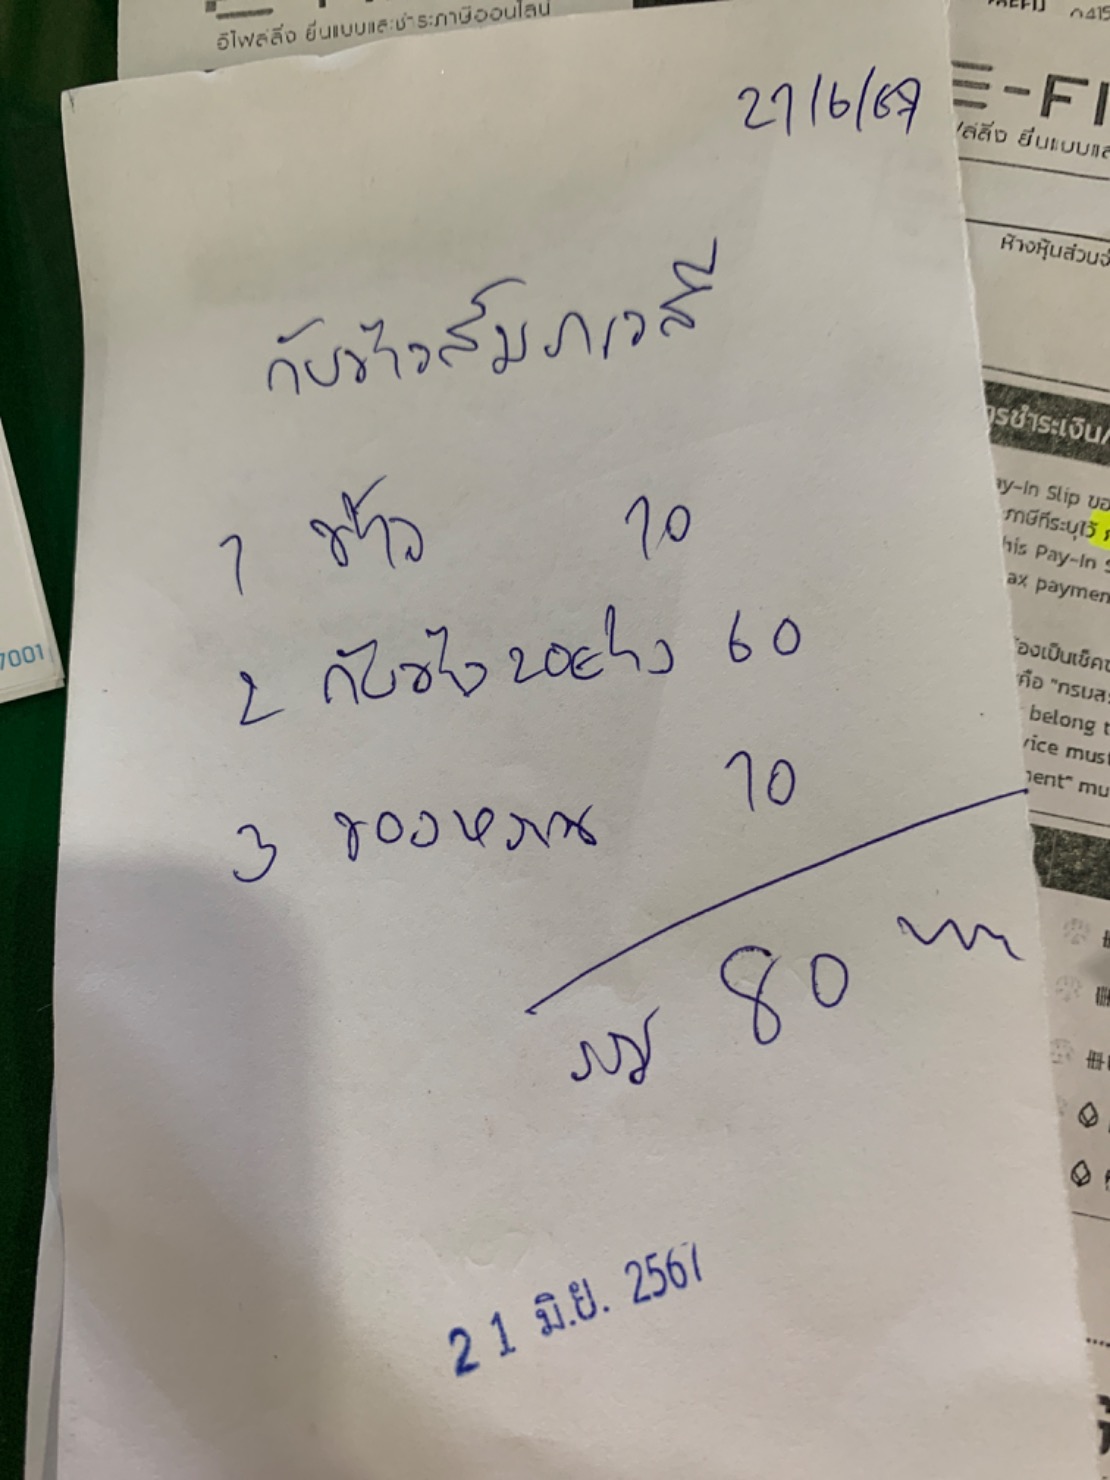 อีไฟล์ลิ่ง ยื่นแบบและชำระภาษีออนไลน์
E-FI
ฟล์ลิ่ง ยื่นแบบและ
ห้างหุ้นส่วนจำ
21/6/67
กับข้าวสัมภเวสี
1 ข้าว 10
2 กับข้าว 2 อย่าง 60
3 ของหวาน 10
รวม 80 บาท
21 มิ.ย. 2567
7001
การชำระเงิน/
ay-In Slip ของ
ภาษีที่ระบุไว้
his Pay-In S
ax paymen
องเป็นเช็คข
คือ "กรมส
belong t
vice must
ment" mu